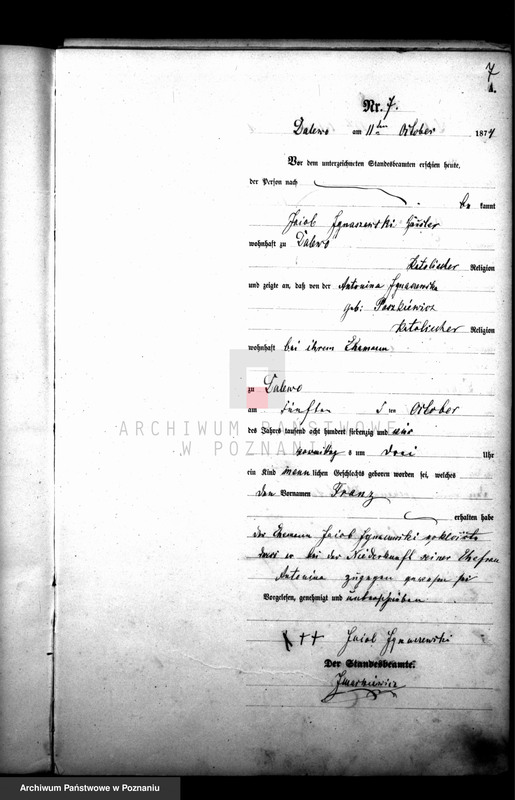 7
A.
Nr. 7.
Dalewo am 11ten October 1874
Vor dem unterzeichneten Standesbeamten erschien heute,
der Person nach
be kannt
Jacob Ignaszewski Häusler
wohnhaft zu Dalewo
Katolischer Religion
und zeigte an, daß von der Antonina Ignaszewska
geb: Paszkiewicz
Katolischer Religion
wohnhaft bei ihrem Ehemann
zu Dalewo
am fünften October
des Jahres tausend acht hundert siebenzig und vier
vormittags um drei Uhr
ein Kind männlichen Geschlechts geboren worden sei, welches
den Vornamen Franz
erhalten habe
der Ehemann Jacob Ignaszewski erklärte
dass er bei der Niederkunft seiner Ehefrau
Antonina zugegen gewesen sei
Vorgelesen, genehmigt und unterschrieben
+++ Jacob Ignaszewski
Der Standesbeamte.
ARCHIWUM PAŃSTWOWE
W POZNANIU
Archiwum Państwowe w Poznaniu